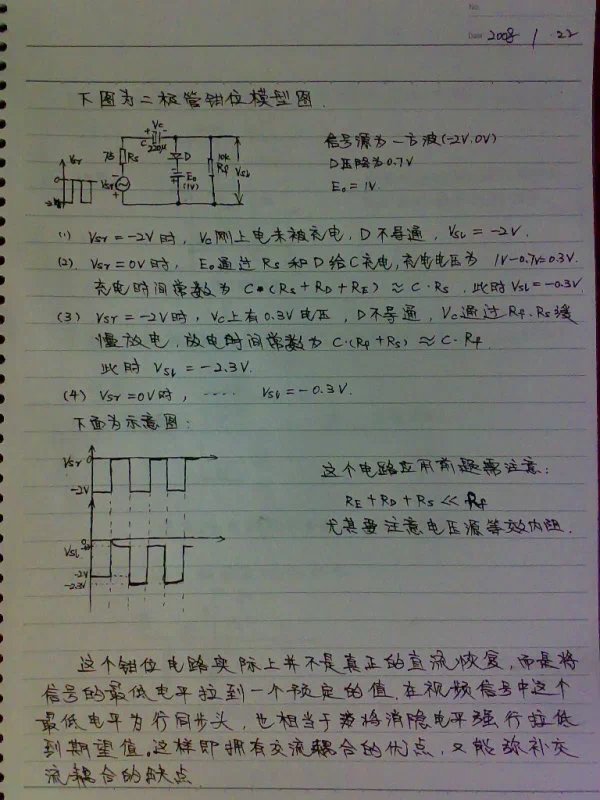 No.
Date 2008 / 1 . 22
下图为二极管钳位模型图.
+ Vc -
C 220μ
Vsr
0
-2V
75 Rs
Vsr
D
E₀
(1V)
10k
Rf
Vsl
信号源为一方波(-2V.0V)
D压降为0.7V
E₀ = 1V.
(1) Vsr = -2V时, Vc刚上电未被充电, D不导通, Vsl = -2V.
(2). Vsr = 0V时, E₀通过 Rs 和D给C充电,充电电压为 1V-0.7V=0.3V.
充电时间常数为 C•(Rs+RD+RE) ≈ C·Rs. 此时Vsl=-0.3V.
(3) Vsr = -2V时, Vc上有0.3V电压, D不导通, Vc通过Rf.Rs缓
慢放电,放电时间常数为 C·(Rf+Rs) ≈ C·Rf.
此时 Vsl = -2.3V.
(4) Vsr=0V时, ····· Vsl=-0.3V.
下面为示意图:
Vsr 0
-2V
Vsl
-2V
-2.3V
这个电路应用前题需注意:
RE+RD+Rs << Rf
尤其要注意电压源等效内阻.
这个钳位电路实际上并不是真正的直流恢复,而是将
信号的最低电平拉到一个预定的值.在视频信号中这个
最低电平为行同步头,也相当于将消隐电平强行拉低
到期望值.这样即拥有交流耦合的优点,又能弥补交
流耦合的缺点